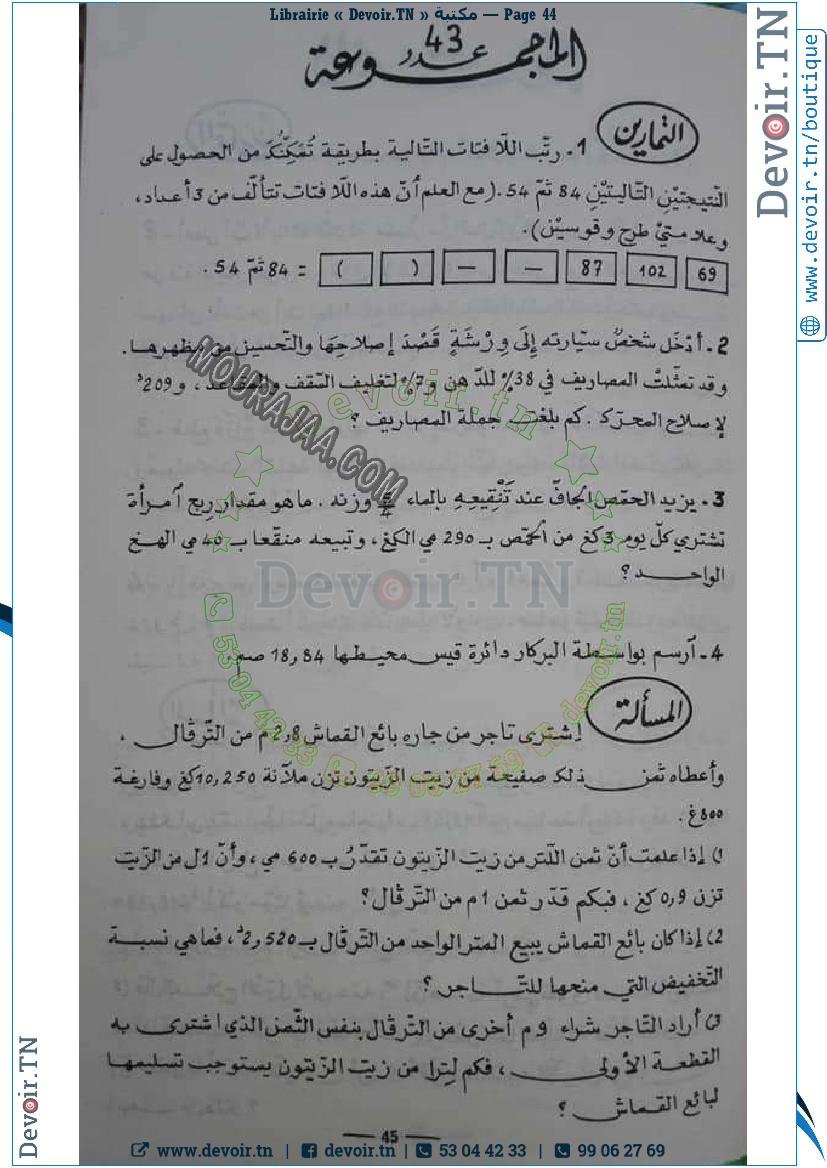 Librairie « Devoir.TN » مكتبة — Page 44
المجموعة عدد 43
التمارين
1- رتّب اللافتات التالية بطريقة تُمَكِّنُكَ من الحصول على
النتيجتيْنِ التّاليتيْن 84 ثمّ 54. (مع العلم أنّ هذه اللافتات تتألّف من 3 أعداد،
وعلامتيْ طرح وقوسيْن).
69 102 87 — — ( ) = 84 ثمّ 54.
2- أدْخَل شخصٌ سيّارته إلَى وِرْشَةٍ قَصْدَ إصلاحِهَا والتّحسين من مظهرها.
وقد تمثّلتْ المصاريف في 38% للدّهن و7% لتغليف السّقف والمقاعد، و209د
لإصلاح المحرّك. كم بلغت جملة المصاريف؟
3- يزيد الحمّص الجافّ عند تَنْقِيعِهِ بالماء وزنه. ماهو مقدار ربح آمرأة
تشتري كلّ يوم 3كغ من الحمّص بـ 290 مي الكغ، وتبيعه منقّعا بـ 40 مي الهغ
الواحد؟
4- آرسم بواسطة البركار دائرة قيس محيطها 18,84 صم.
المسألة
إشترى تاجر من جاره بائع القماش 2,8م من التّرڤال،
وأعطاه ثمن ذلك صفيحة من زيت الزّيتون تزن ملآنة 10,250كغ وفارغة
800غ.
1) إذا علمت أنّ ثمن اللّتر من زيت الزّيتون تقدّر بـ 600 مي، وأنّ 1ل من الزّيت
تزن 0,9 كغ، فبكم قدّر ثمن 1م من التّرڤال؟
2) إذا كان بائع القماش يبيع المتر الواحد من التّرڤال بـ 2,520د، فماهي نسبة
التّخفيض التي منحها للتّاجر؟
3) أراد التّاجر شراء 9م أخرى من التّرڤال بنفس الثّمن الذي اشترى به
القطعة الأولى، فكم لِترا من زيت الزّيتون يستوجب تسليمها
لبائع القماش؟
— 45 —
MOURAJAA.COM
devoir.tn
Devoir.TN
53 04 42 33
99 06 27 69
devoir.tn
Devoir.TN
www.devoir.tn/boutique
Devoir.TN
www.devoir.tn | devoir.tn | 53 04 42 33 | 99 06 27 69